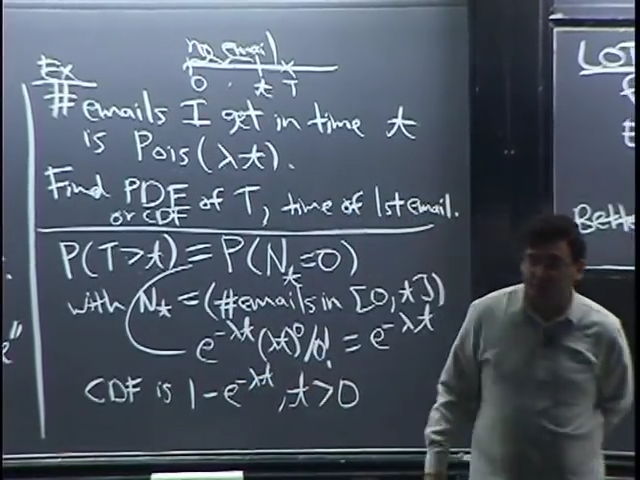 Ex
no email
0 t T
# emails I get in time t
is Pois(λt).
Find PDF of T, time of 1st email.
or CDF
P(T>t) = P(N_t=0)
with N_t = (# emails in [0,t])
e^{-λt}(λt)^0/0! = e^{-λt}
CDF is 1-e^{-λt}, t>0
LOT
Bette
e"